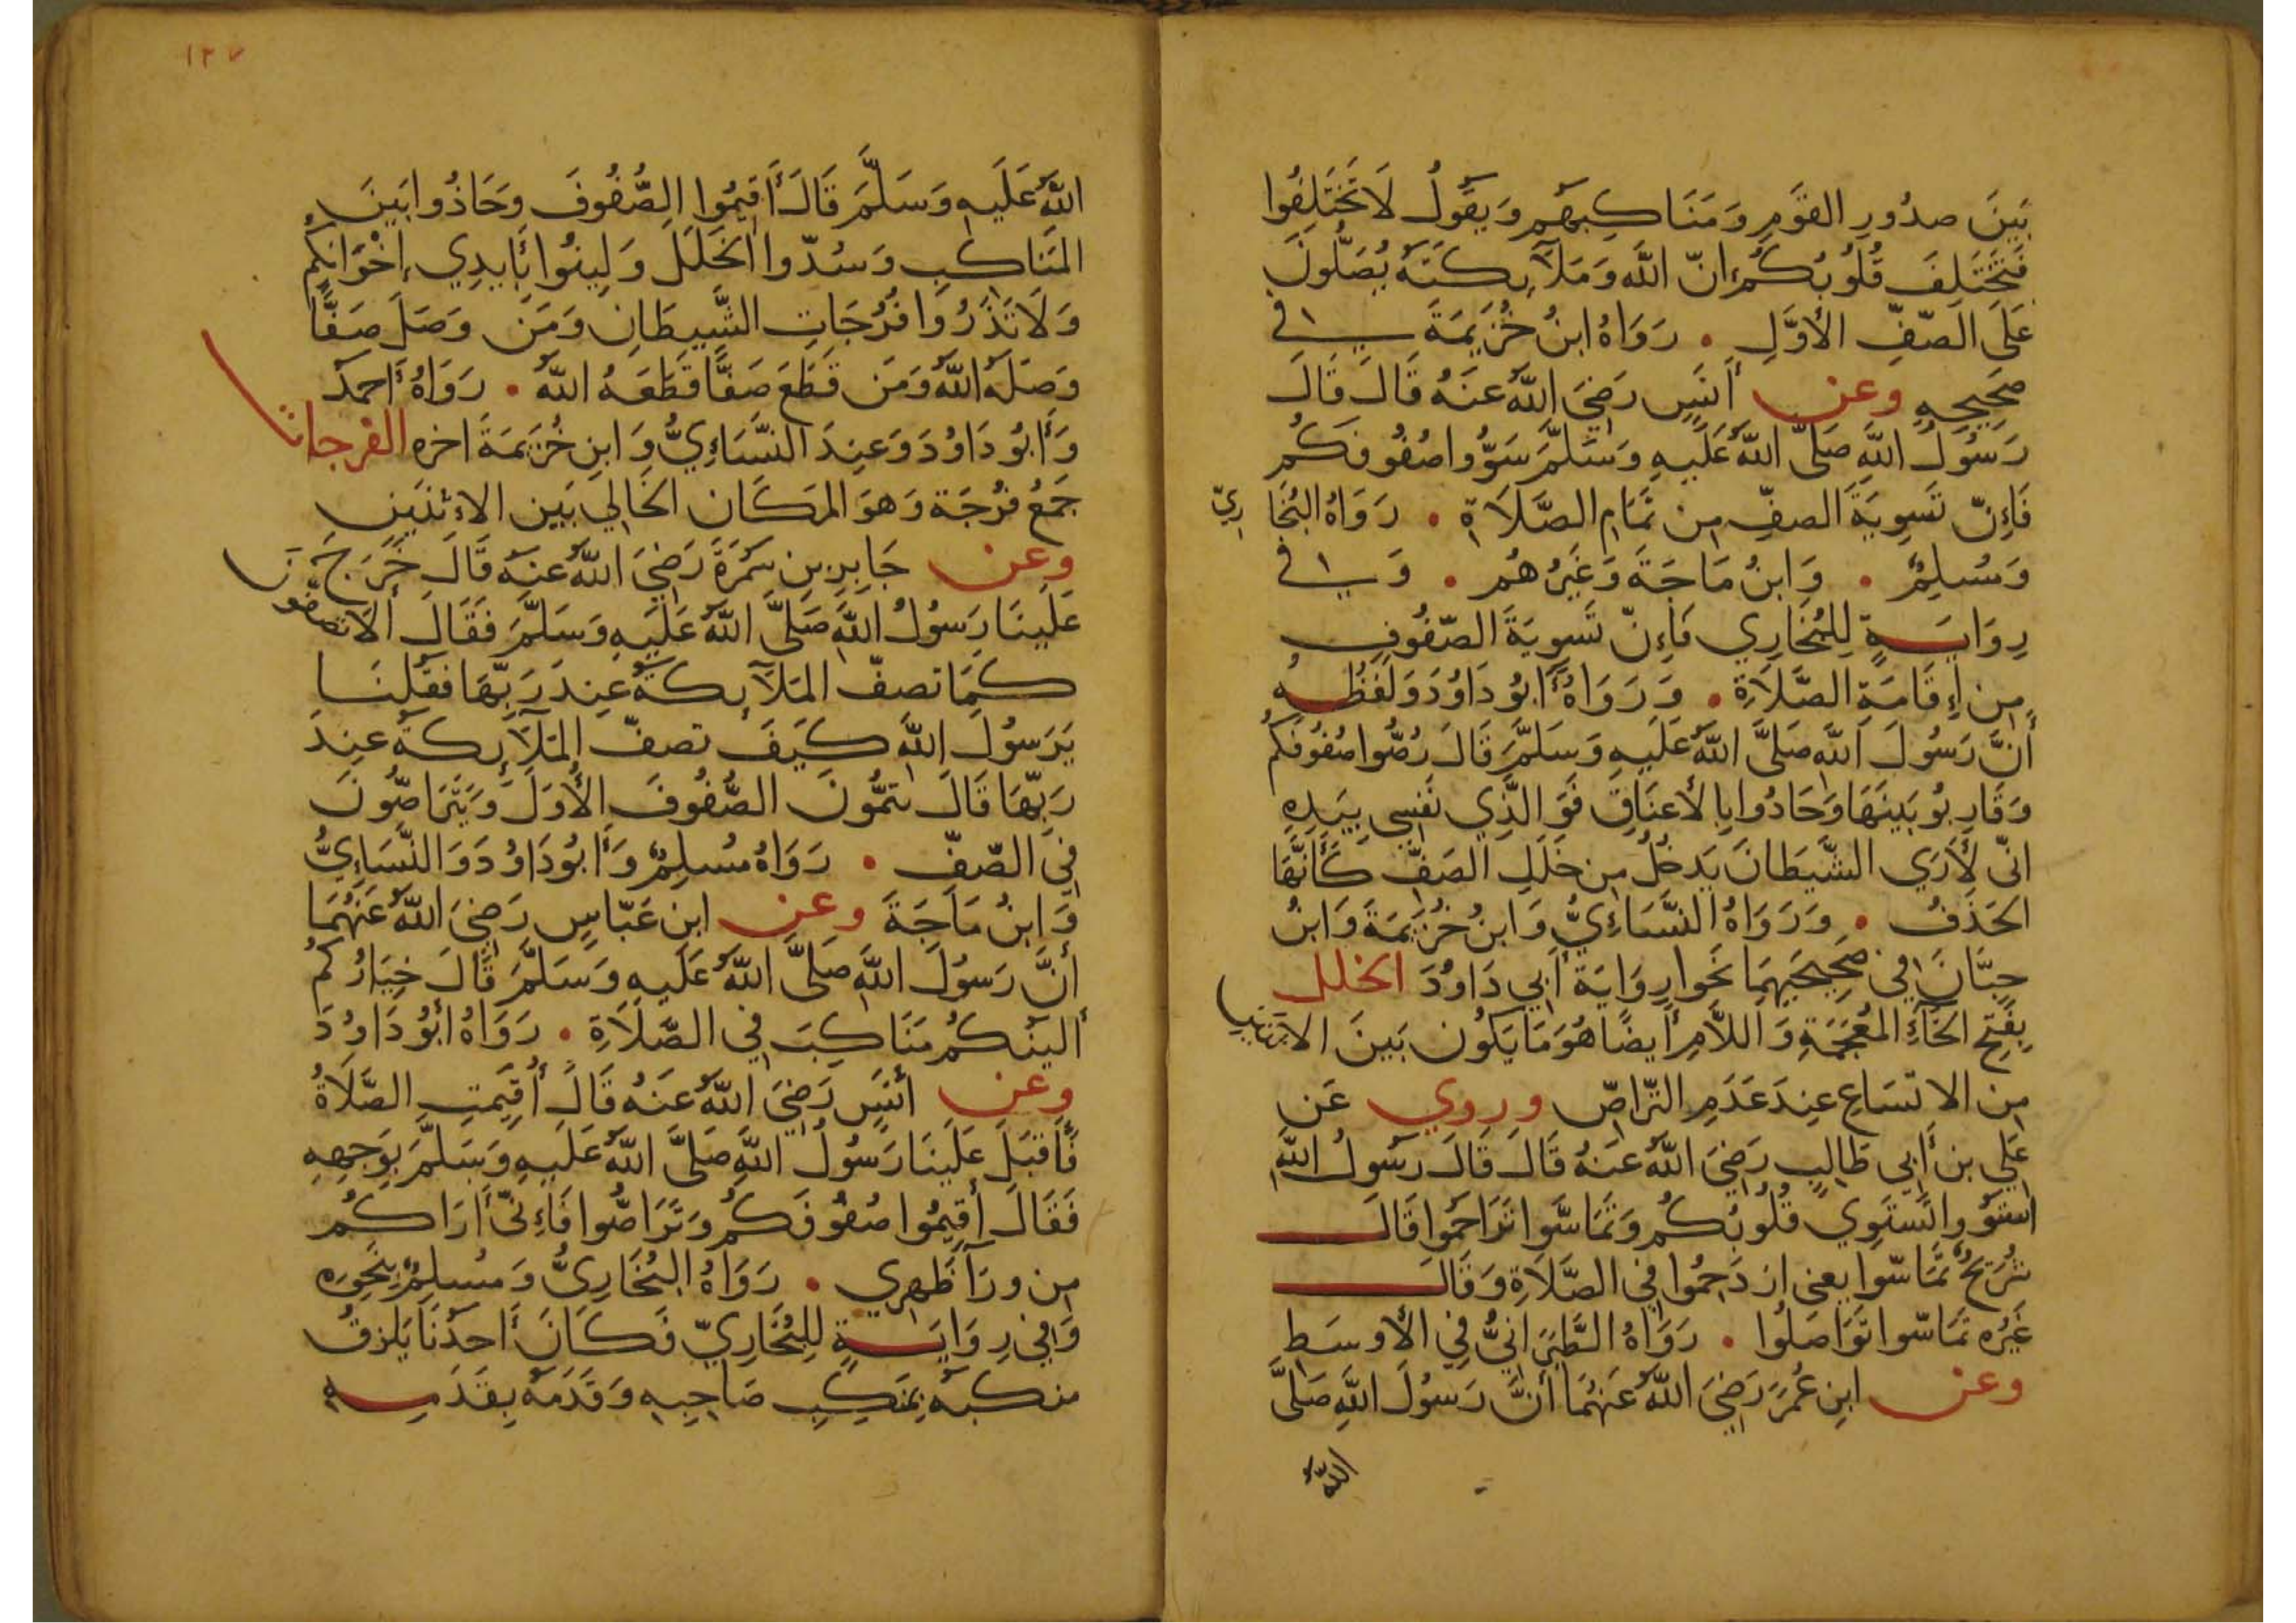 بَينَ صدُورِ القَومِ وَمَنَاكِبِهُم وَيَقُولُ لَا تَختَلِفُوا
فَتَختَلِفَ قُلُوبُكُم إنّ اللهَ وَمَلَآئِكَتَهُ يُصَلُّونَ
عَلَى الصّفِّ الأَوَّلِ • رَوَاهُ ابنُ خُزَيمَةَ فِي
صَحِيحِهِ وعن أَنَسٍ رَضِيَ اللهُ عَنهُ قَالَ قَالَ
رَسُولُ اللهِ صَلَّى اللهُ عَلَيهِ وَسَلَّمَ سَوُّوا صُفُوفَكُم
فَإِنّ تَسوِيَةَ الصفِّ مِن تَمَامِ الصَّلَاةِ • رَوَاهُ البُخَارِيّ
وَمُسلِمٌ • وَابنُ مَاجَةَ وَغَيرُهُم • وَفِي
رِوَايَةٍ لِلبُخَارِي فَإِنّ تَسوِيَةَ الصّفُوفِ
مِن إِقَامَةِ الصَّلَاةِ • وَرَوَاهُ أَبُو دَاوُدَ وَلَفظُهُ
أَنَّ رَسُولَ اللهِ صَلَّى اللهُ عَلَيهِ وَسَلَّمَ قَالَ رُصُّوا صُفُوفَكُم
وَقَارِبُو بَينَهَا وَحَادُوا بِالأَعنَاقِ فَوَ الَّذِي نَفسِي بِيَدِهِ
انّى لَأَرَي الشَّيطَانَ يَدخُلُ مِن خَلَلِ الصَفِّ كَأَنَّهَا
الحَذَفُ • وَرَوَاهُ النَّسَاءِيُّ وَابنُ خُزَيمَةَ وَابنُ
حِبَّانَ فِي صَحِيحَيهِمَا نَحوا رِوَايَة أَبِي دَاوُدَ الخلل
بِفَتحِ الخَآءِ المُعجَمَةِ وَاللَّامِ أَيضًا هُوَ مَا يَكُون بَينَ الاثنَينِ
مِن الاتّسَاعِ عِندَ عَدَمِ التّرَاصّ وروي عَن
عَلِي بن أَبِي طَالِبٍ رَضِيَ اللهُ عَنهُ قَالَ قَالَ رَسُولُ اللهِ
استَوُوا تَستَوِي قُلُوبُكُم وَتَمَاسَّوا تَرَاحَمُوا قَالَ
سُرَيجٌ تَمَاسّوا يعنى ازدَحِمُوا فِي الصَّلَاةِ وَقَالَ
غَيرُه تَمَاسّوا تَوَاصَلُوا • رَوَاهُ الطَّبَرَانِيُّ فِي الأَوسَطِ
وعن ابنِ عُمَرَ رَضِيَ اللهُ عَنهُمَا أَنَّ رَسُولَ اللهِ صَلَّى
اللهُ
١٢٧
اللهُ عَلَيهِ وَسَلَّمَ قَالَ أَقِيمُوا الصُّفُوفَ وَحَاذُوا بَينَ
المَنَاكِبِ وَسُدّوا الخَلَلَ وَلِينُوا بِأَيدِي إِخْوَانِكُم
وَلَا تَذَرُوا فُرُجَاتِ الشَّيطَانِ وَمَن وَصَلَ صَفًّا
وَصَلَهُ اللهُ وَمَن قَطَعَ صَفًّا قَطَعَهُ اللهُ • رَوَاهُ أَحمَدُ
وَأَبُو دَاوُدَ وَعِندَ النَّسَاءِيُّ وَابنِ خُزَيمَةَ اخره الفرجات
جَمعُ فُرُجَة وَهوَ المَكَان الخَالِي بَين الاءثنَينِ
وعن جَابِرِ بنِ سَمُرَةَ رَضِيَ اللهُ عَنهُ قَالَ خَرَجَ
عَلَينَا رَسُولُ اللهِ صَلَّى اللهُ عَلَيهِ وَسَلَّمَ فَقَالَ أَلَا تصُفّونَ
كَمَا تصفّ المَلَآئِكَةُ عِندَ رَبِّهَا فَقُلنَا
يَرَسُولَ اللهِ كَيفَ تصفّ المَلَآئِكَةُ عِندَ
رَبِّهَا قَالَ يتمُّونَ الصُّفُوفَ الأُوَلَ وَيَتَرَاصُّونَ
فِي الصّفّ • رَوَاهُ مُسلِمٌ وَأَبُو دَاوُدَ وَالنَّسَاءِيُّ
وَابنُ مَاجَةَ وعن ابنِ عَبّاسٍ رَضِيَ اللهُ عَنهُمَا
أَنَّ رَسُولَ اللهِ صَلَّى اللهُ عَلَيهِ وَسَلَّمَ قَالَ خِيَارُكُم
أَليَنُكُم مَنَاكِبَ فِي الصَّلَاةِ • رَوَاهُ أَبُو دَاوُدَ
وعن أَنَسٍ رَضِيَ اللهُ عَنهُ قَالَ أُقِيمَتِ الصَّلَاةُ
فَأَقبَلَ عَلَينَا رَسُولُ اللهِ صَلَّى اللهُ عَلَيهِ وَسَلَّمَ بِوَجهِهِ
فَقَالَ أَقِيمُوا صُفُوفَكُم وَتَرَاصُّوا فَاءِنّى أَرَاكُم
مِن ورَآ ظَهرِي • رَوَاهُ البُخَارِيُّ وَمُسلِمٌ بِنَحوِه
وَفِي رِوَايَةٍ لِلبُخَارِيّ فَكَانَ أَحَدُنَا يَلزقُ
منكبهُ بِمَنكِبِ صَاحِبِهِ وَقَدَمَهُ بِقَدَمِهِ